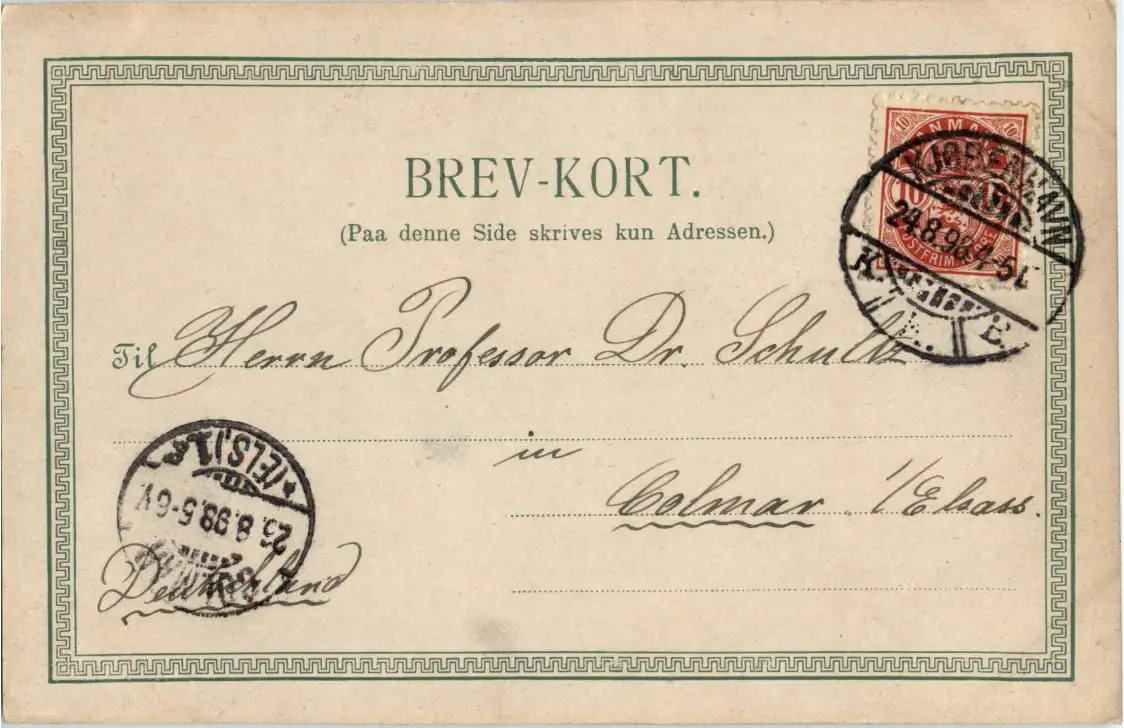 BREV-KORT.
(Paa denne Side skrives kun Adressen.)
10 DANMARK 10
10
POSTFRIM. 10 ØRE
KJØBENHAVN
24.8.98.4-5E
K. B.
Til Herrn Professor Dr. Schultz
in
Colmar i/Elsass.
Deutschland
(ELS.) 1
26.8.98.5-6V